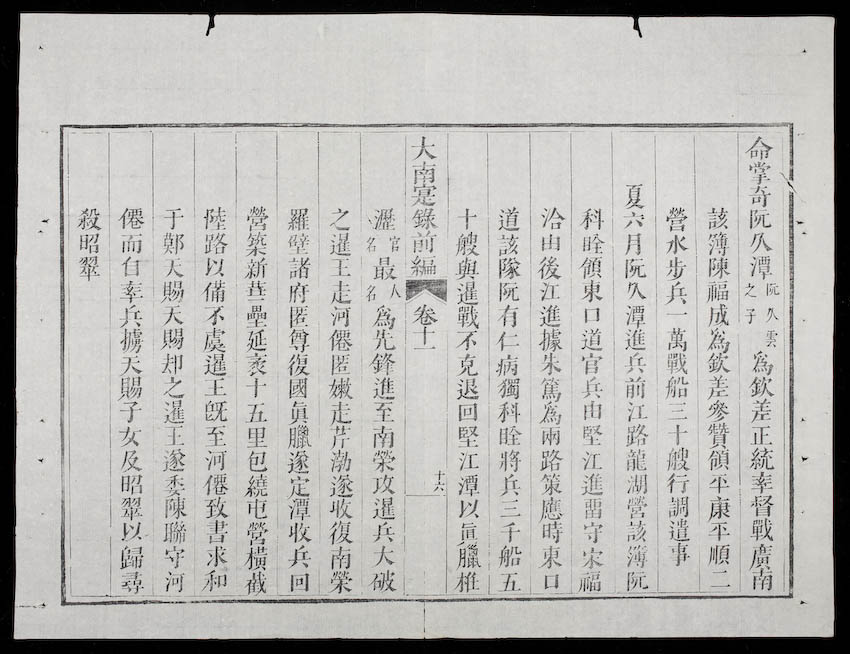 命掌奇阮久潭阮久雲之子為欽差正統率督戰廣南
該簿陳福成為欽差參贊領平康平順二
營水步兵一萬戰船三十艘行調遣事
夏六月阮久潭進兵前江路龍湖營該簿阮
科詮領東口道官兵由堅江進畱守宋福
洽由後江進據朱篤為兩路策應時東口
道該隊阮有仁病獨科詮將兵三千船五
十艘與暹戰不克退回堅江潭以眞臘椎
大南寔錄前編 卷十一 十六
瀝官名最人名為先鋒進至南榮攻暹兵大破
之暹王走河僊匿嫩走芹渤遂收復南榮
羅壁諸府匿尊復國眞臘遂定潭收兵回
營築新壘延袤十五里包繞屯營橫截
陸路以備不虞暹王旣至河僊致書求和
于鄚天賜天賜却之暹王遂委陳聯守河
僊而自率兵擄天賜子女及昭翠以歸尋
殺昭翠